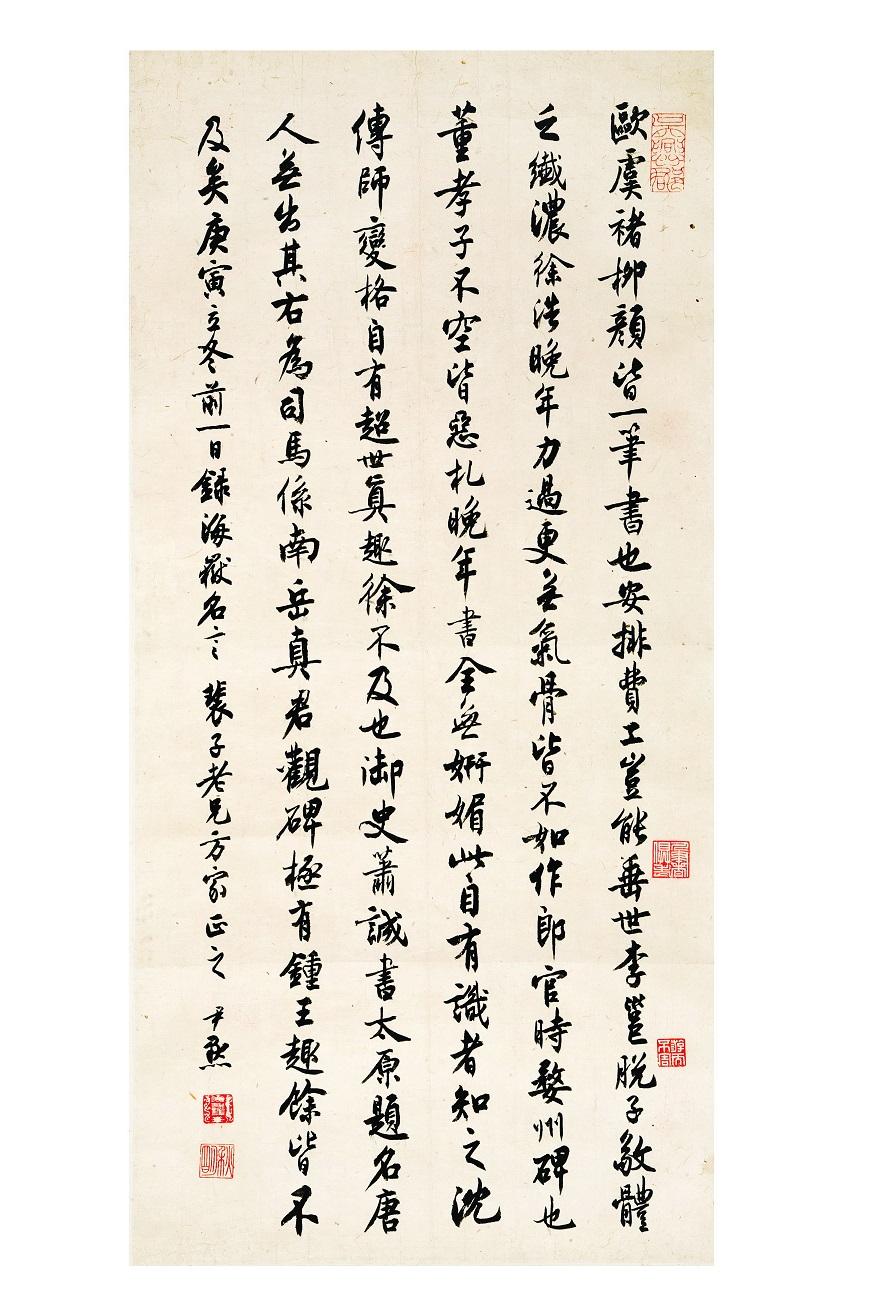 歐虞褚柳顏皆一筆書也安排費工豈能垂世李邕脫子敬體
乏纖濃徐浩晚年力過更無氣骨皆不如作郎官時婺州碑也
董孝子不空皆惡札晚年書全無妍媚此自有識者知之沈
傳師變格自有超世真趣徐不及也御史蕭誠書太原題名唐
人無出其右為司馬係南岳真君觀碑極有鍾王趣餘皆不
及矣庚寅立冬前一日錄海嶽名言 裴子老兄方家正之 尹默